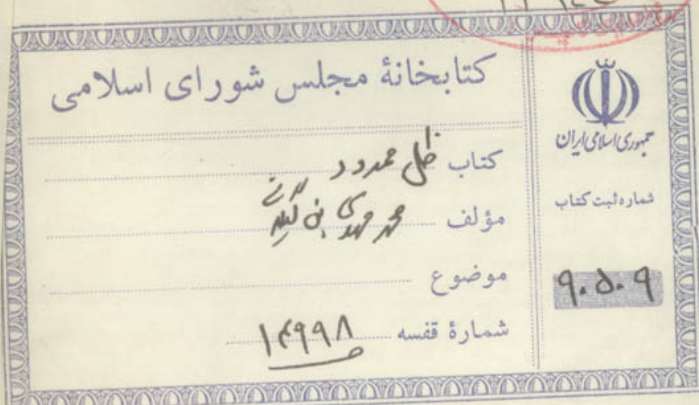 کتابخانهٔ مجلس شورای اسلامی
کتاب ظل ممدود
مؤلف محمد مهدی بن
موضوع
شمارهٔ قفسه ۱۴۹۹۸
جمهوری اسلامی ایران
شماره ثبت کتاب
۹۰۵۰۹